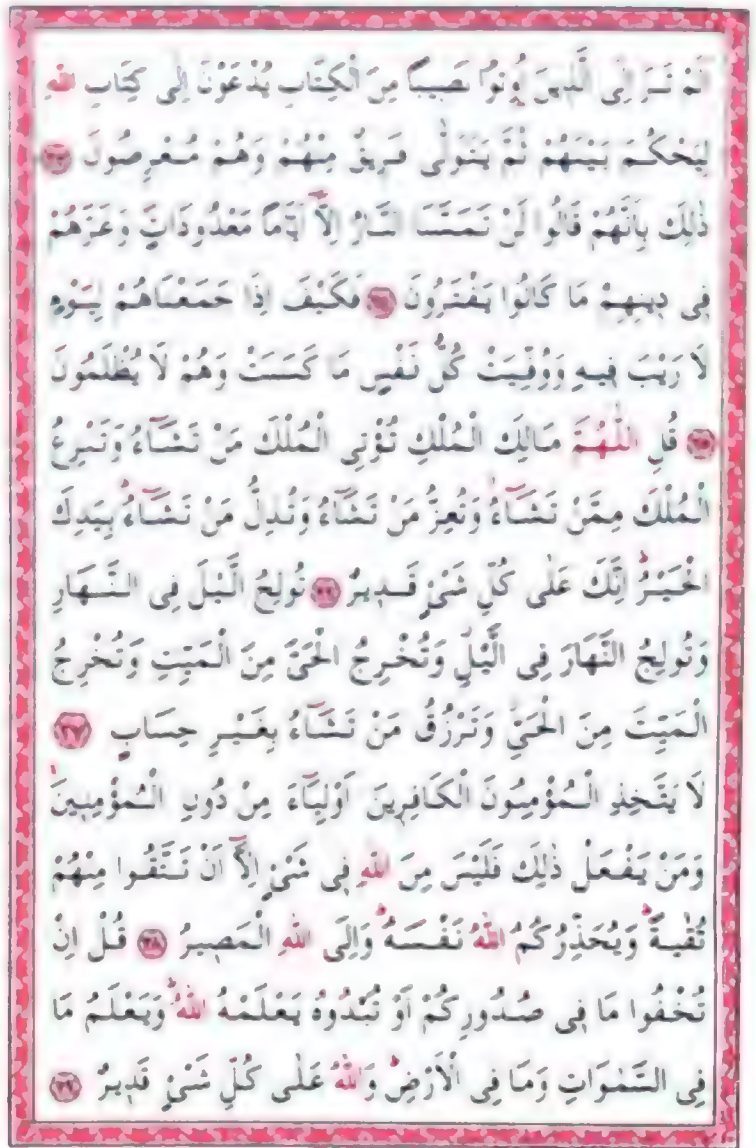 اَلَمْ تَرَ اِلَى الَّذِينَ اُوتُوا نَصِيبًا مِنَ الْكِتَابِ يُدْعَوْنَ اِلٰى كِتَابِ اللّٰهِ
لِيَحْكُمَ بَيْنَهُمْ ثُمَّ يَتَوَلّٰى فَرِيقٌ مِنْهُمْ وَهُمْ مُعْرِضُونَ ﴿٢٣﴾
ذٰلِكَ بِاَنَّهُمْ قَالُوا لَنْ تَمَسَّنَا النَّارُ اِلَّٓا اَيَّامًا مَعْدُودَاتٍ وَغَرَّهُمْ
فِى دِينِهِمْ مَا كَانُوا يَفْتَرُونَ ﴿٢٤﴾ فَكَيْفَ اِذَا جَمَعْنَاهُمْ لِيَوْمٍ
لَا رَيْبَ فِيهِ وَوُفِّيَتْ كُلُّ نَفْسٍ مَا كَسَبَتْ وَهُمْ لَا يُظْلَمُونَ
﴿٢٥﴾ قُلِ اللّٰهُمَّ مَالِكَ الْمُلْكِ تُؤْتِى الْمُلْكَ مَنْ تَشَٓاءُ وَتَنْزِعُ
الْمُلْكَ مِمَّنْ تَشَٓاءُ وَتُعِزُّ مَنْ تَشَٓاءُ وَتُذِلُّ مَنْ تَشَٓاءُ بِيَدِكَ
الْخَيْرُ اِنَّكَ عَلٰى كُلِّ شَىْءٍ قَدِيرٌ ﴿٢٦﴾ تُولِجُ الَّيْلَ فِى النَّهَارِ
وَتُولِجُ النَّهَارَ فِى الَّيْلِ وَتُخْرِجُ الْحَىَّ مِنَ الْمَيِّتِ وَتُخْرِجُ
الْمَيِّتَ مِنَ الْحَىِّ وَتَرْزُقُ مَنْ تَشَٓاءُ بِغَيْرِ حِسَابٍ ﴿٢٧﴾
لَا يَتَّخِذِ الْمُؤْمِنُونَ الْكَافِرِينَ اَوْلِيَٓاءَ مِنْ دُونِ الْمُؤْمِنِينَ
وَمَنْ يَفْعَلْ ذٰلِكَ فَلَيْسَ مِنَ اللّٰهِ فِى شَىْءٍ اِلَّٓا اَنْ تَتَّقُوا مِنْهُمْ
تُقٰيةً وَيُحَذِّرُكُمُ اللّٰهُ نَفْسَهُ وَاِلَى اللّٰهِ الْمَصِيرُ ﴿٢٨﴾ قُلْ اِنْ
تُخْفُوا مَا فِى صُدُورِكُمْ اَوْ تُبْدُوهُ يَعْلَمْهُ اللّٰهُ وَيَعْلَمُ مَا
فِى السَّمٰوَاتِ وَمَا فِى الْاَرْضِ وَاللّٰهُ عَلٰى كُلِّ شَىْءٍ قَدِيرٌ ﴿٢٩﴾